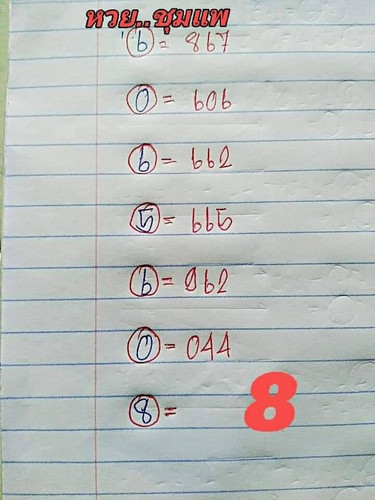 หวย..ชุมแพ
6 = 867
0 = 606
6 = 662
5 = 665
6 = 962
0 = 044
8 = 8